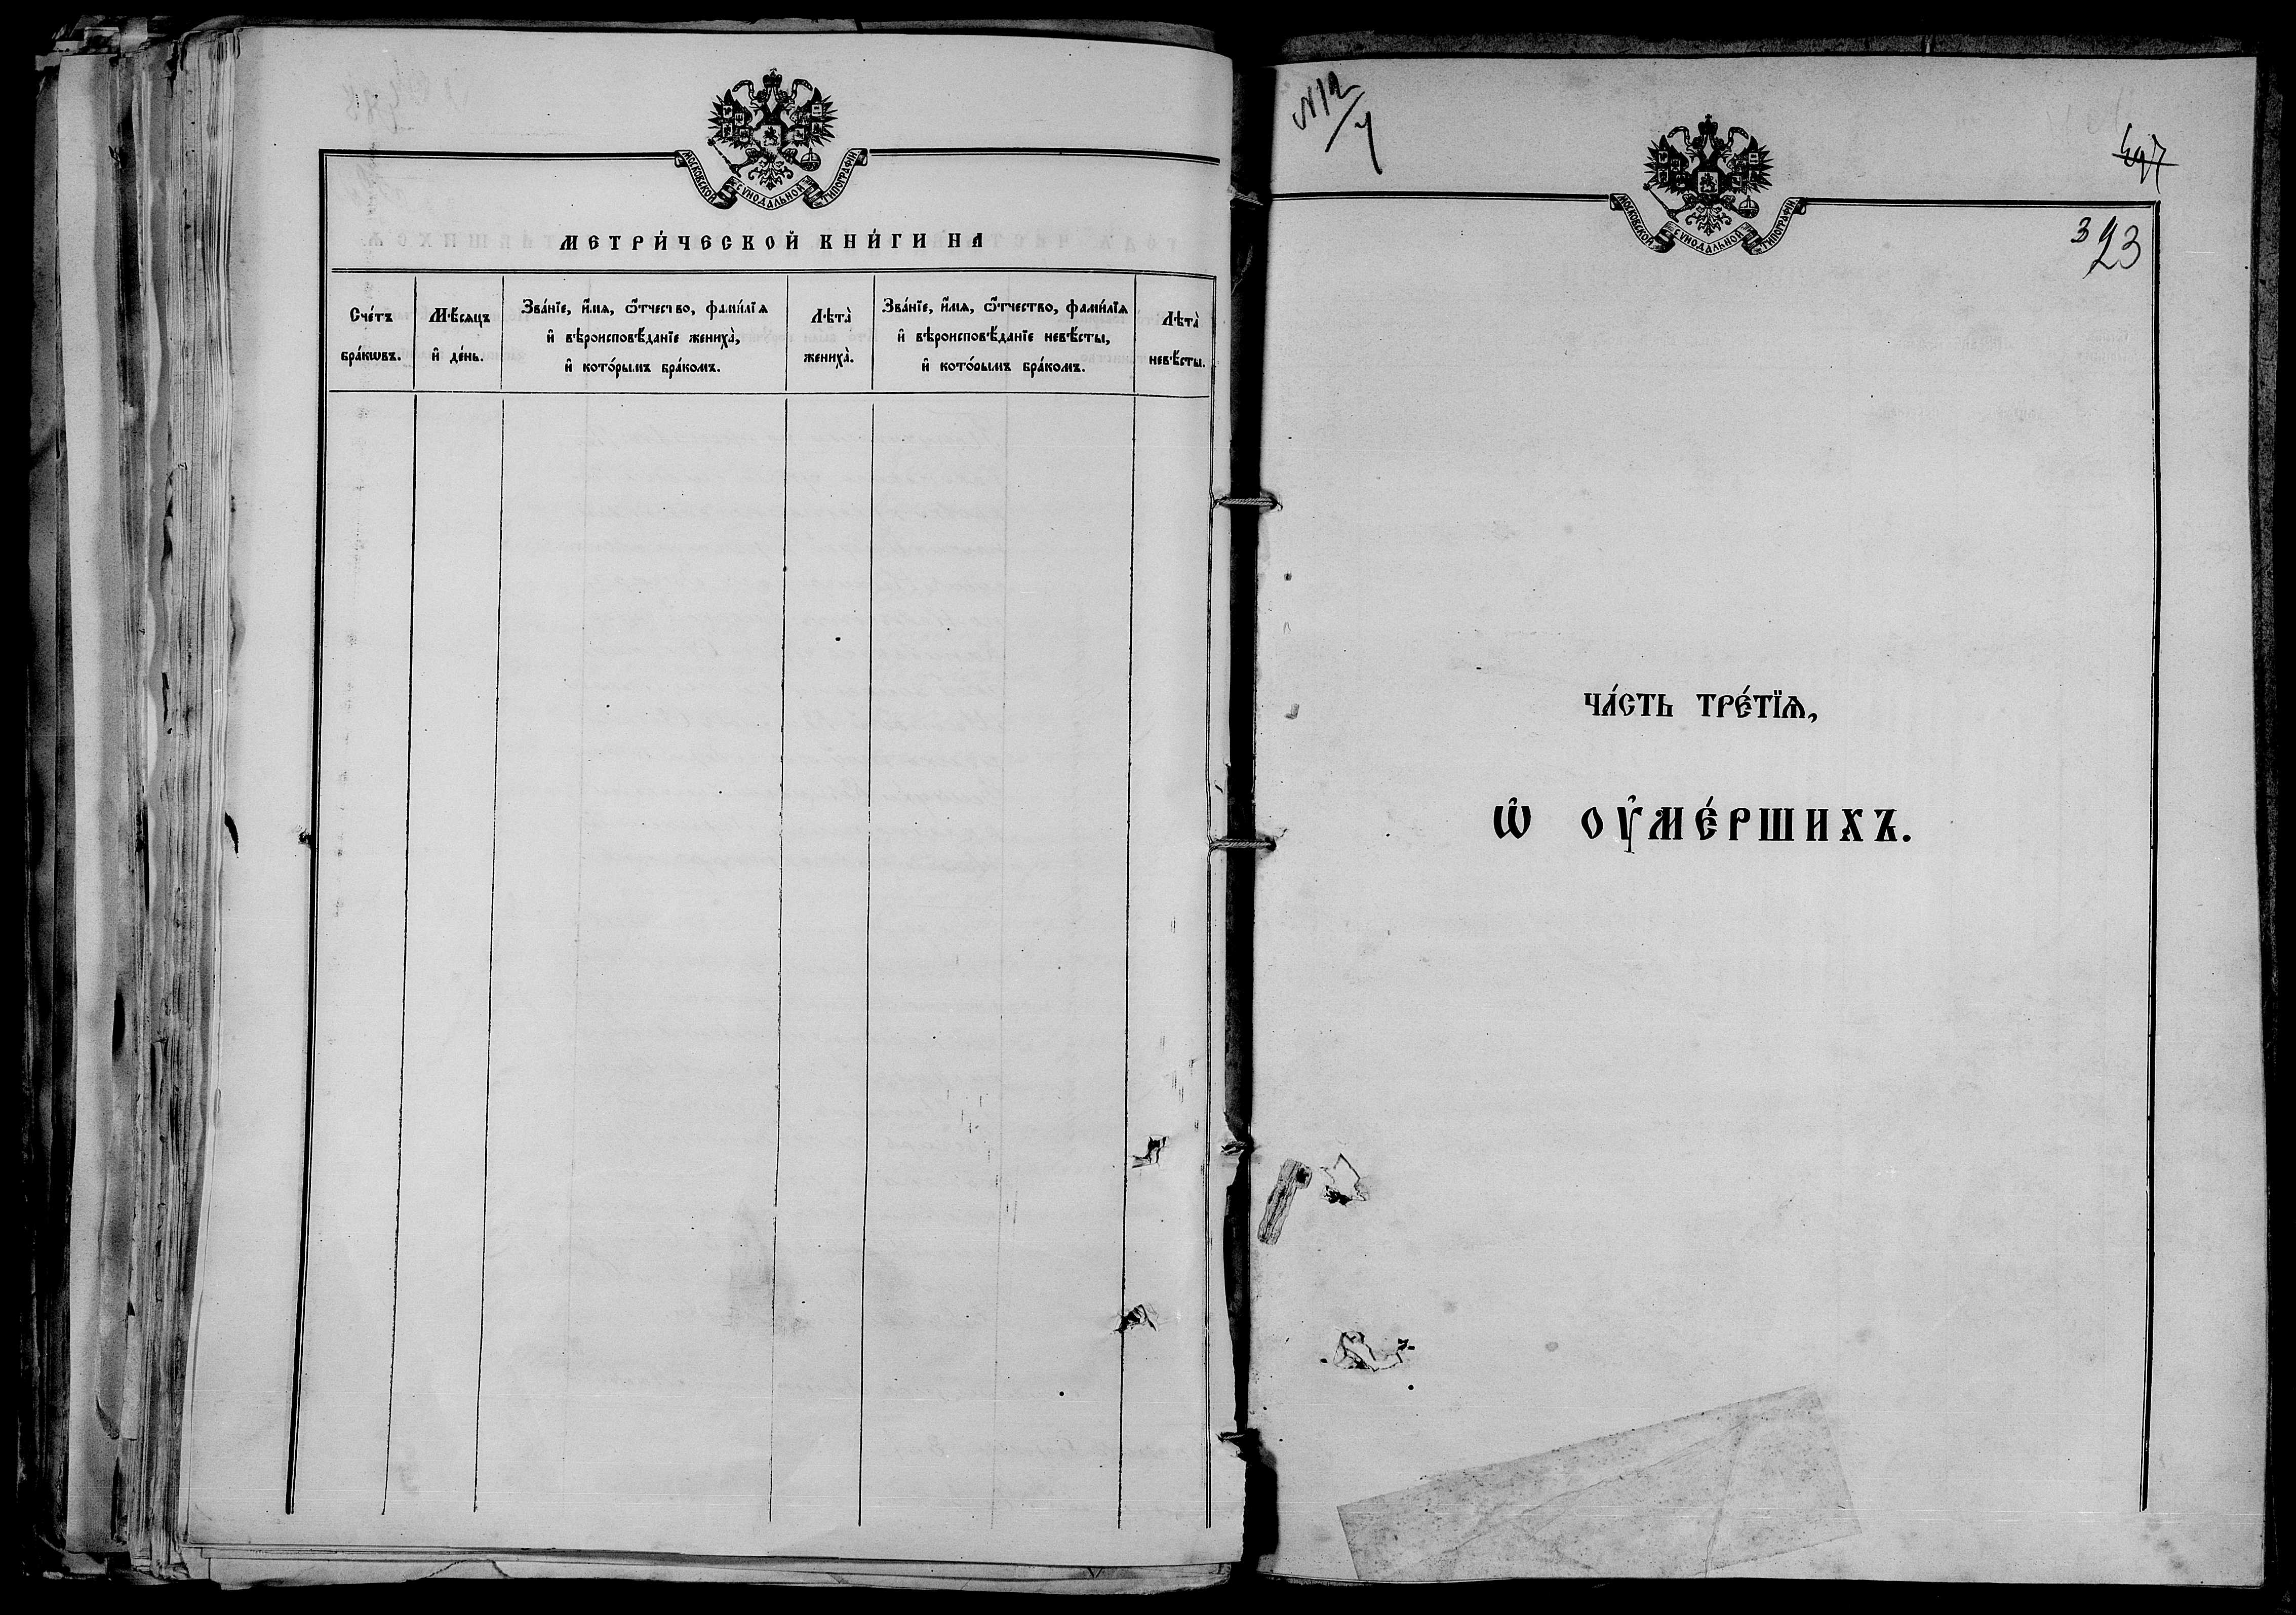 МОСКОВСКОЙ СѴНОДАЛЬНОЙ ТИПОГРАФІИ
МЕТРИ́ЧЕСКОЙ КНИ́ГИ НА
Сче́тъ
бра́кѡвъ.
Мѣ́сяцъ
и҆ де́нь.
Зва́нїе, и҆́мѧ, ѻ҆́тчество, фами́лїѧ
и҆ вѣроисповѣ́данїе жениха̀,
и҆ кото́рымъ бра́комъ.
Лѣта̀
жениха̀.
Зва́нїе, и҆́мѧ, ѻ҆́тчество, фами́лїѧ
и҆ вѣроисповѣ́данїе невѣ́сты,
и҆ кото́рымъ бра́комъ.
Лѣта̀
невѣ́сты.
№12/4
МОСКОВСКОЙ СѴНОДАЛЬНОЙ ТИПОГРАФІИ
323
ЧА́СТЬ ТРЕ́ТЇѦ,
Ѡ҆ ОУ҆МЕ́РШИХЪ.